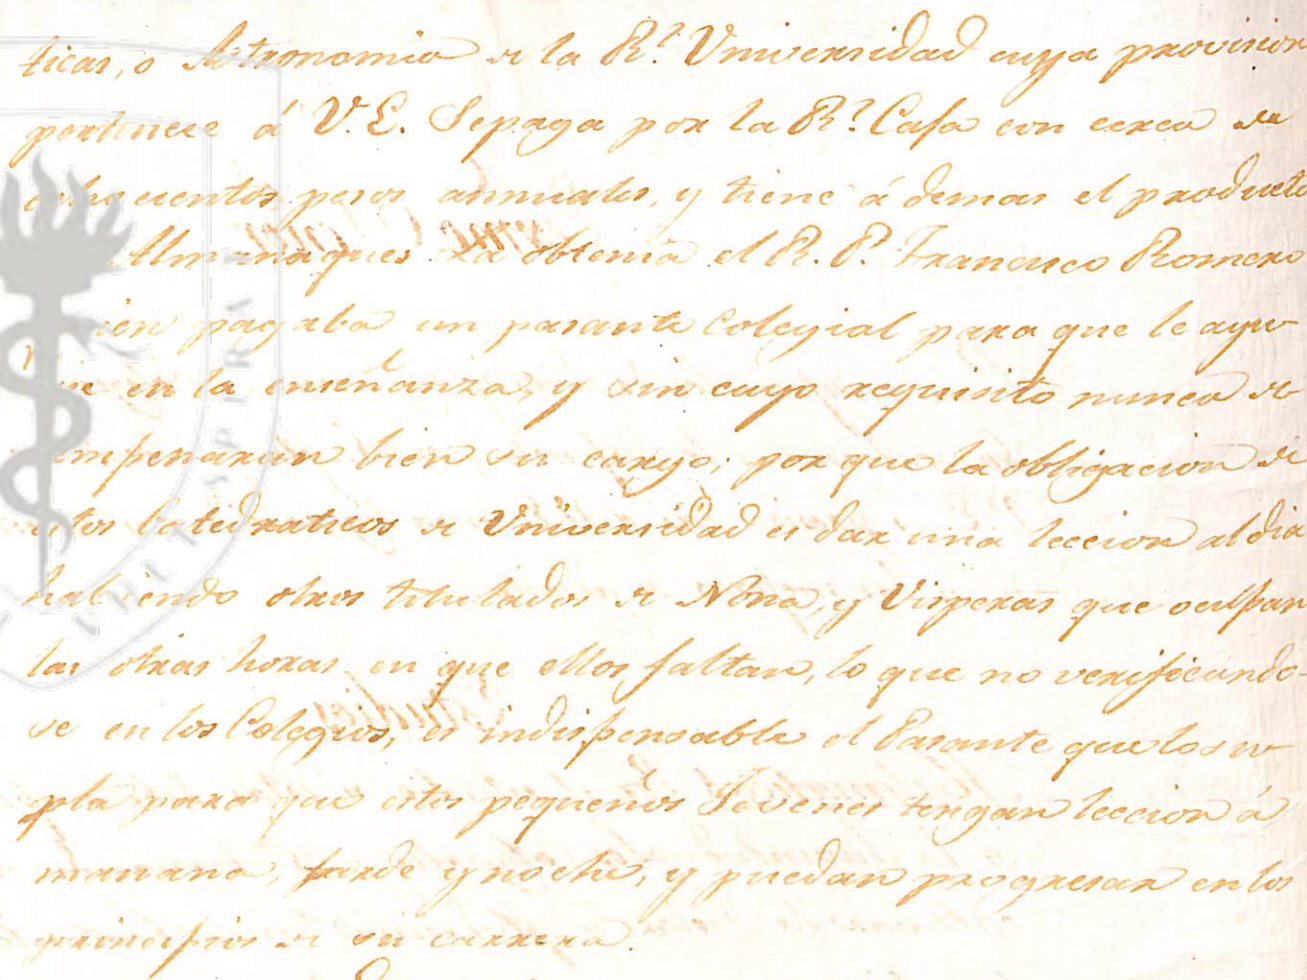 ticas, o Astronomia de la Rl. Universidad cuya provision
pertenece á V.E. Se paga por la Rl. Casa con cerca de
ochocientos pesos annuales, y tiene á demas el producto
Almanaques. La obtenia el R. P. Francisco Romero
quien pagaba un pasante Colegial para que le ayu-
en la enseñanza, y sin cuyo requisito nunca de
empeñaran bien su cargo; por que la obligacion de
estos Catedraticos de Universidad es dar una leccion al dia
habiendo otros titulados de Nona, y Visperas que oculpan
las otras horas en que ellos faltan, lo que no verificando-
se en los Colegios, es indispensable el Pasante que los su
pla para que estos pequeños Jovenes tengan leccion á
manana, tarde y noche, y puedan progresar en los
principios de su carrera.